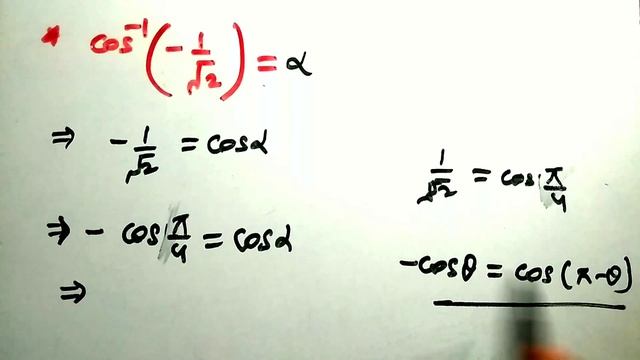 * cos⁻¹(-1/√2) = α
⇒ -1/√2 = cosα
⇒ - cos π/4 = cosα
⇒
1/√2 = cos π/4
-cosθ = cos(π-θ)